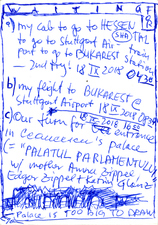 WAITING FR
a) my cab to go to HESSEN
to go to Stuttgart Air from
port to go to BUKAREST @
18 IX 2018
b) my flight to BUKAREST @
Stuttgart Airport 18 IX 2018
c) Our turn for entrance
in Ceaucescu's palace
(= "PALATUL PARLAMENTULUI"
w/ mother Anna Zippel
Edgar Zippel + Katrin Glanz
Palace is TOO BIG TO DRAW